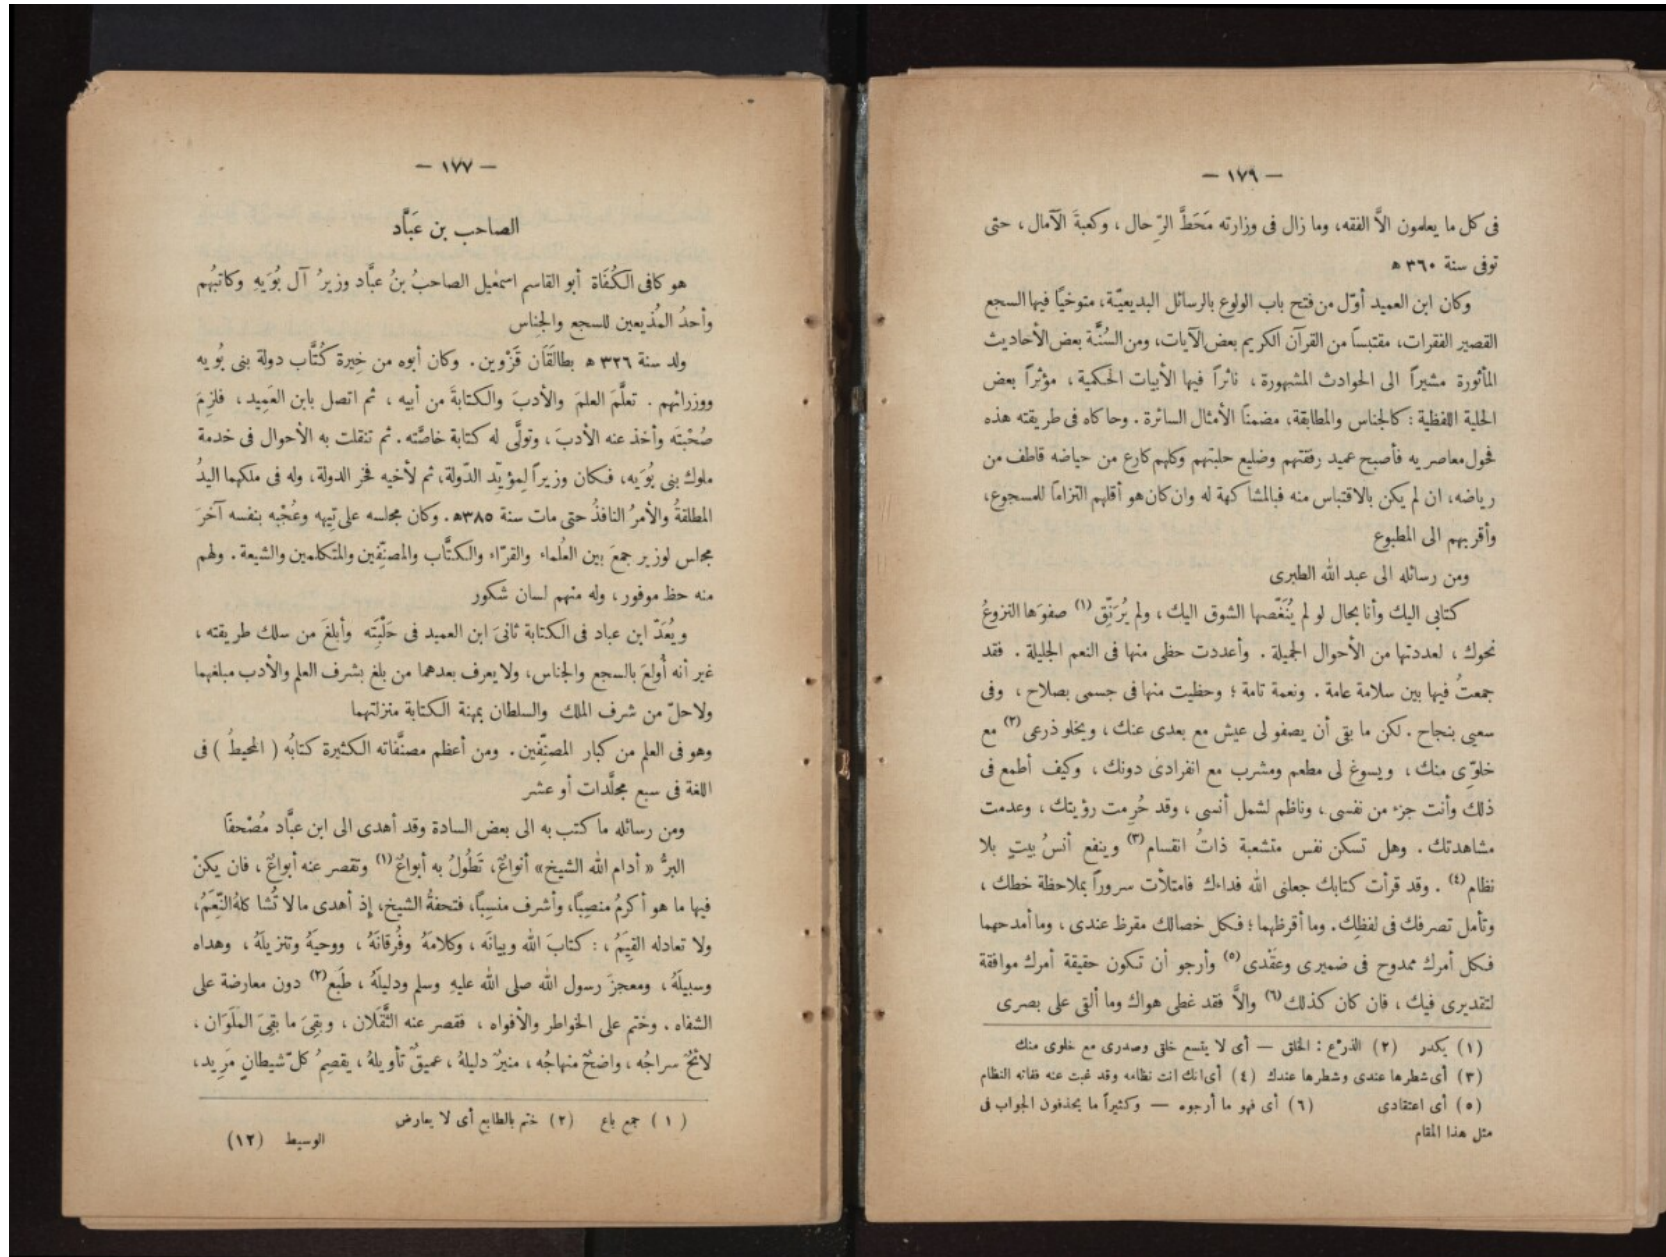 — ١٧٩ —
فى كل ما يعلمون الاَّ الفقه، وما زال فى وزارته مَحَطَّ الرِّحال، وكعبةَ الآمال، حتى
توفى سنة ٣٦٠ ه
وكان ابن العميد أوّل من فتح باب الولوع بالرسائل البديعيّة، متوخياً فيها السجع
القصير الفقرات، مقتبساً من القرآن الكريم بعض الآيات، ومن السُنَّة بعض الأحاديث
المأثورة مشيراً الى الحوادث المشهورة، ناثراً فيها الأبيات الحَكمية، مؤثراً بعض
الحلية اللفظية: كالجناس والمطابقة، مضمناً الأمثال السائرة. وحاكاه فى طريقته هذه
فحول معاصريه فأصبح عميد رفقتهم وضليع حلبتهم وكلهم كارع من حياضه قاطف من
رياضه، ان لم يكن بالاقتباس منه فبالمشاكهة له وان كان هو أقلهم التزاماً للمسجوع،
وأقربهم الى المطبوع
ومن رسائله الى عبد الله الطبرى
كتابى اليك وأنا بحال لو لم يُنَغّصها الشوق اليك، ولم يُرَنِّق (١) صفوَها النزوعُ
نحوك، لعددتها من الأحوال الجميلة. وأعددت حظى منها فى النعم الجليلة. فقد
جمعتُ فيها بين سلامة عامة. ونعمة تامة؛ وحظيت منها فى جسمى بصلاح، وفى
سعيى بنجاح. لكن ما بقى أن يصفو لى عيش مع بعدى عنك، ويخلو ذرعى (٢) مع
خلوّى منك، ويسوغ لى مطعم ومشرب مع انفرادى دونك، وكيف أطمع فى
ذلك وأنت جزء من نفسى، وناظم لشمل أنسى، وقد حُرِمت رؤيتك، وعدمت
مشاهدتك. وهل تسكن نفس متشعبة ذاتُ انقسام (٣) وينفع أنسُ بيتٍ بلا
نظام (٤). وقد قرأت كتابك جعلنى الله فداءك فامتلأت سروراً بملاحظة خطك،
وتأمل تصرفك فى لفظِك. وما أقرظهما؛ فكل خصالك مقرظ عندى، وما أمدحهما
فكل أمرك ممدوح فى ضميرى وعَقْدى (٥) وأرجو أن تكون حقيقة أمرك موافقة
لتقديرى فيك، فان كان كذلك (٦) والاَّ فقد غطى هواك وما ألقى على بصرى
(١) يكدر (٢) الذرع: الخلق — أى لا يتسع خلقى وصدرى مع خلوى منك
(٣) أى شطرها عندى وشطرها عندك (٤) أى انك انت نظامه وقد غبت عنه ففاته النظام
(٥) أى اعتقادى (٦) أى فهو ما أرجوه — وكثيراً ما يحذفون الجواب فى
مثل هذا المقام
— ١٧٧ —
الصاحب بن عَبَّاد
هو كافى الكُفَاة أبو القاسم اسمٰعيل الصاحبُ بنُ عبَّاد وزيرُ آل بُوَيهِ وكاتبُهم
وأحدُ المُذيعين للسجع والجِناس
ولد سنة ٣٢٦ ه بطالَقَان قَزْوين. وكان أبوه من خِيرة كُتَّاب دولة بنى بُويه
ووزرائهم. تعلَّمَ العلمَ والأدبَ والكتابةَ من أبيه، ثم اتصل بابن العَمِيد، فلزِمَ
صُحْبتَه وأخذ عنه الأدبَ، وتولَّى له كتابة خاصَّته. ثم تنقلت به الأحوال فى خدمة
ملوك بنى بُوَيه، فكان وزيراً لِمؤيِّد الدّولة، ثم لأخيه فخر الدولة، وله فى ملكهما اليدُ
المطلقةُ والأمرُ النافذُ حتى مات سنة ٣٨٥ه. وكان مجلسه على تيهه وعُجْبه بنفسه آخرَ
مجلس لوزير جمعَ بين العُلماء والقرّاء والكتَّاب والمصنِّفين والمتكلمين والشيعة. ولهم
منه حظ موفور، وله منهم لسان شكور
ويُعَدّ ابن عباد فى الكتابة ثانىَ ابن العميد فى حَلْبَتِه وأبلغَ من سلك طريقته،
غير أنه أُولعَ بالسجع والجناس، ولا يعرف بعدهما من بلغ بشرف العلم والأدب مبلغهما
ولا حلّ من شرف الملك والسلطان بمهنة الكتابة منزلتهما
وهو فى العلم من كبار المصنِّفين. ومن أعظم مصنَّفاته الكثيرة كتابُه (المحيطُ) فى
اللغة فى سبع مجلَّدات أو عشر
ومن رسائله ما كتب به الى بعض السادة وقد أهدى الى ابن عبَّاد مُصْحفاً
البرُّ «أدام الله الشيخ» أنواعٌ، تَطُولُ به أبواعٌ (١) وتقصر عنه أبواعٌ، فان يكنْ
فيها ما هو أكرمُ منصِباً، وأشرف منسِباً، فتحفةُ الشيخ، إذ أهدى ما لا تُشاكلهُ النِّعَمُ،
ولا تعادله القِيَمُ،: كتابَ الله وبيانَه، وكلامَهُ وفُرقانَهُ، ووحيَهُ وتنزيلَهُ، وهداه
وسبيلَهُ، ومعجزَ رسول الله صلى الله عليهِ وسلم ودليلَهُ، طَبَع (٢) دون معارضة على
الشفاه. وختم على الخواطر والأفواه، فقصر عنه الثَّقَلان، وبقِىَ ما بقِىَ المَلَوَان،
لائحٌ سراجُه، واضحٌ منهاجُه، منيرٌ دليلهُ، عميقٌ تأويلهُ، يقصِمُ كلّ شيطانٍ مَريد،
(١) جمع باع (٢) ختم بالطابع أى لا يعارض
الوسيط (١٢)